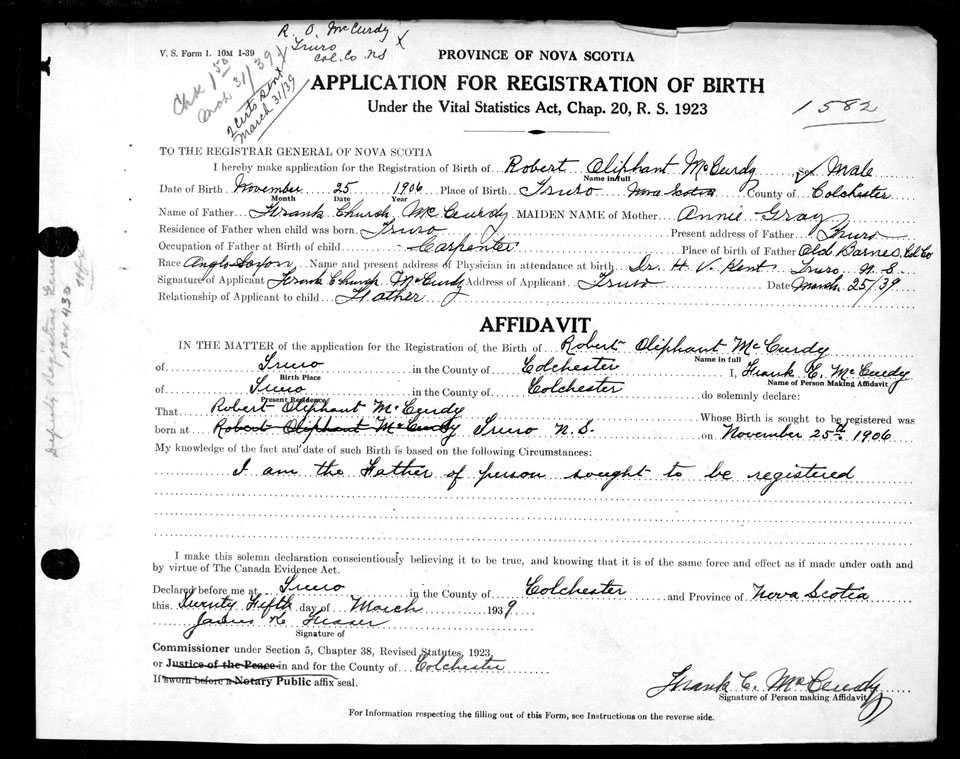 R. O. McCurdy X
Truro
Col. Co. NS
V. S. Form 1. 10M 1-39
Chk 1.50
March 31/39 X
2 certs sent X
March 31/39
PROVINCE OF NOVA SCOTIA
APPLICATION FOR REGISTRATION OF BIRTH
Under the Vital Statistics Act, Chap. 20, R. S. 1923
1582
TO THE REGISTRAR GENERAL OF NOVA SCOTIA
I hereby make application for the Registration of Birth of Robert Oliphant McCurdy Sex Male
Name in full
Date of Birth November 25 1906 Place of Birth Truro Nova Scotia County of Colchester
Month Date Year
Name of Father Frank Church McCurdy MAIDEN NAME of Mother Annie Gray
Residence of Father when child was born. Truro Present address of Father Truro
Occupation of Father at Birth of child Carpenter Place of birth of Father Old Barnes, Col Co
Race Anglo Saxon Name and present address of Physician in attendance at birth Dr. H. V. Kent Truro N. S.
Signature of Applicant Frank Church McCurdy Address of Applicant Truro Date March 25/39
Relationship of Applicant to child Father
AFFIDAVIT
IN THE MATTER of the application for the Registration of the Birth of Robert Oliphant McCurdy
Name in full
of Truro in the County of Colchester I, Frank C. McCurdy
Birth Place Name of Person Making Affidavit
of Truro in the County of Colchester do solemnly declare:
Present Residence
That Robert Oliphant McCurdy Whose Birth is sought to be registered was
born at Robert Oliphant McCurdy Truro N.S. on November 25th 1906
My knowledge of the fact and date of such Birth is based on the following Circumstances:
I am the Father of person sought to be registered
I make this solemn declaration conscientiously believing it to be true, and knowing that it is of the same force and effect as if made under oath and
by virtue of The Canada Evidence Act.
Declared before me at Truro in the County of Colchester and Province of Nova Scotia
this Twenty Fifth day of March 1939
Signature of
Commissioner under Section 5, Chapter 38, Revised Statutes, 1923,
or Justice of the Peace in and for the County of Colchester
If sworn before a Notary Public affix seal.
Frank C. McCurdy
Signature of Person making Affidavit
For Information respecting the filling out of this Form, see Instructions on the reverse side.